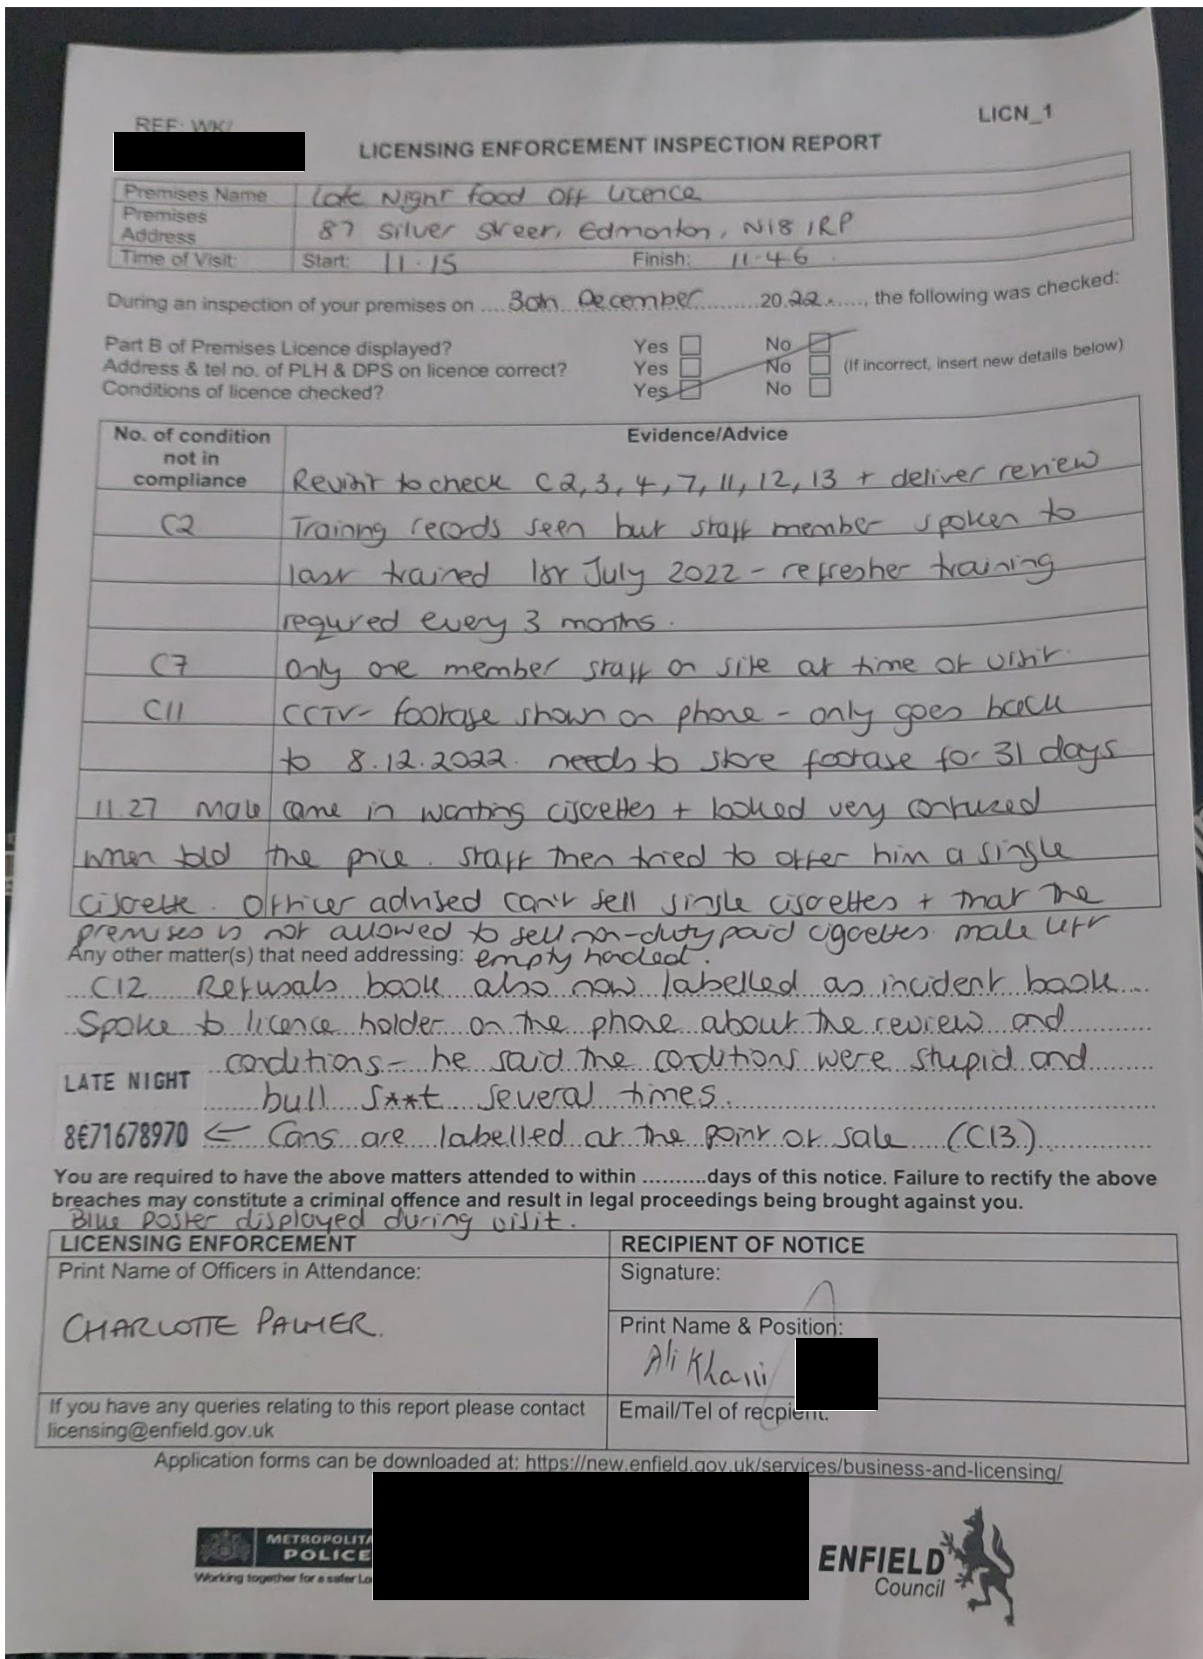 LICN_1
REF: WK/
LICENSING ENFORCEMENT INSPECTION REPORT
Premises Name Late Night Food Off Licence
Premises Address 87 Silver Street, Edmonton, N18 1RP
Time of Visit: Start: 11.15 Finish: 11.46
During an inspection of your premises on ....30th December..........20.22......, the following was checked:
Part B of Premises Licence displayed? Yes No
Address & tel no. of PLH & DPS on licence correct? Yes No (If incorrect, insert new details below)
Conditions of licence checked? Yes No
No. of condition not in compliance Evidence/Advice
Revisit to check C2, 3, 4, 7, 11, 12, 13 + deliver review
C2 Training records seen but staff member spoken to
last trained 1st July 2022 - refresher training
required every 3 months.
C7 Only one member staff on site at time of visit.
C11 CCTV - footage shown on phone - only goes back
to 8.12.2022. needs to store footage for 31 days
11.27 Male came in wanting cigarettes + looked very confused
when told the price. Staff then tried to offer him a single
cigarette. Officer advised can't sell single cigarettes + that the
premises is not allowed to sell non-duty paid cigarettes. male left
Any other matter(s) that need addressing: empty handed.
C12 Refusals book also now labelled as incident book
Spoke to licence holder on the phone about the review and
conditions - he said the conditions were stupid and
LATE NIGHT
bull s**t several times.
8€71678970 ← Cans are labelled at the point of sale (C13)
You are required to have the above matters attended to within ..........days of this notice. Failure to rectify the above
breaches may constitute a criminal offence and result in legal proceedings being brought against you.
Blue Poster displayed during visit.
LICENSING ENFORCEMENT RECIPIENT OF NOTICE
Print Name of Officers in Attendance: Signature:
CHARLOTTE PALMER.
Print Name & Position:
Ali Khani
If you have any queries relating to this report please contact
licensing@enfield.gov.uk
Email/Tel of recpient:
Application forms can be downloaded at: https://new.enfield.gov.uk/services/business-and-licensing/
METROPOLITA
POLICE
Working together for a safer Lo
ENFIELD
Council